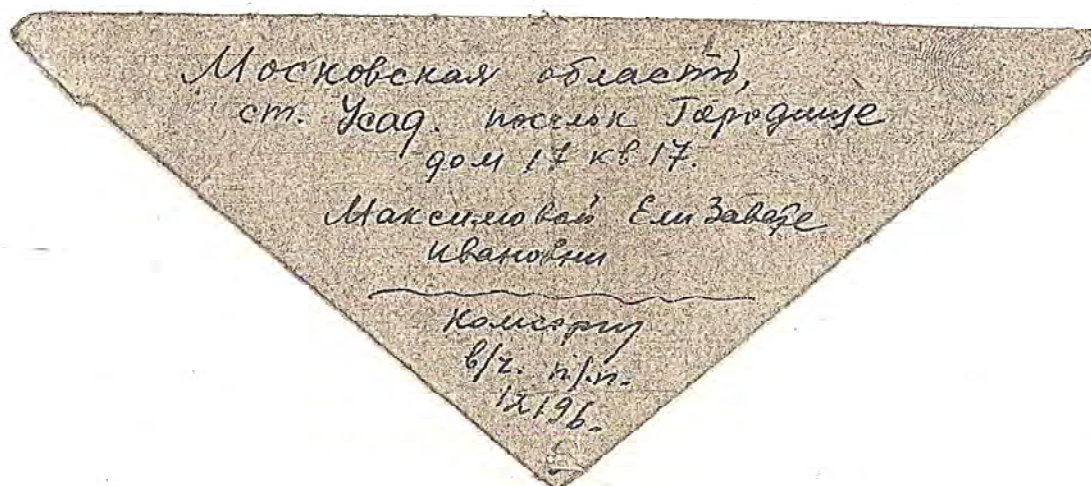 Московская область,
ст. Усад. поселок Городище
дом 17 кв 17.
Максимовой Елизавете
Ивановни
Комсоргу
в/ч. п/п.